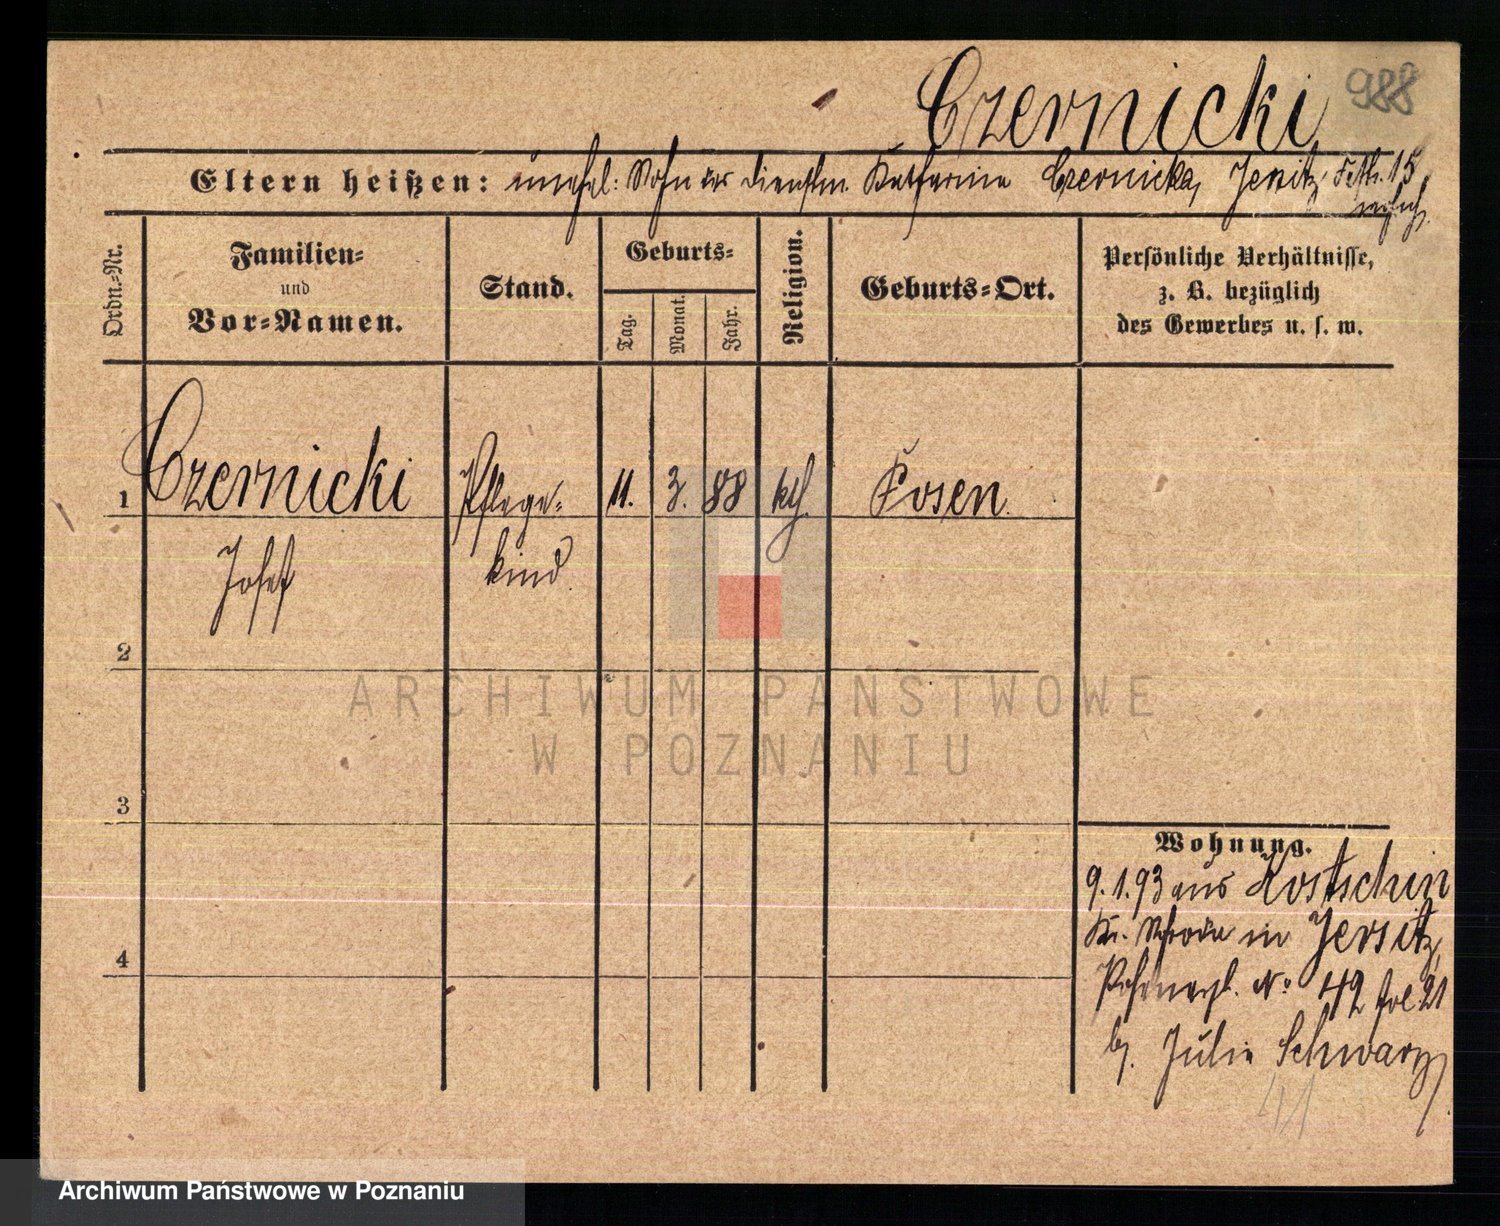 988
Czernicki
Eltern heißen: unehel: Sohn der Dienstm. Katharina Czernicka, Jersitz, 15
Ordn.-Nr.
Familien-
und
Vor-Namen.
Stand.
Geburts-
Tag.
Monat.
Jahr.
Religion.
Geburts-Ort.
Persönliche Verhältnisse,
z. B. bezüglich
des Gewerbes u. s. w.
1 Czernicki Pflege- 11. 3. 88 kth. Posen
Josef kind
2
3
4
Wohnung.
9.1.93 aus Kostschin
Kr. Schroda in Jersitz,
No 42 fol 21
b. Julie Schwarz
41
ARCHIWUM PAŃSTWOWE
W POZNANIU
Archiwum Państwowe w Poznaniu